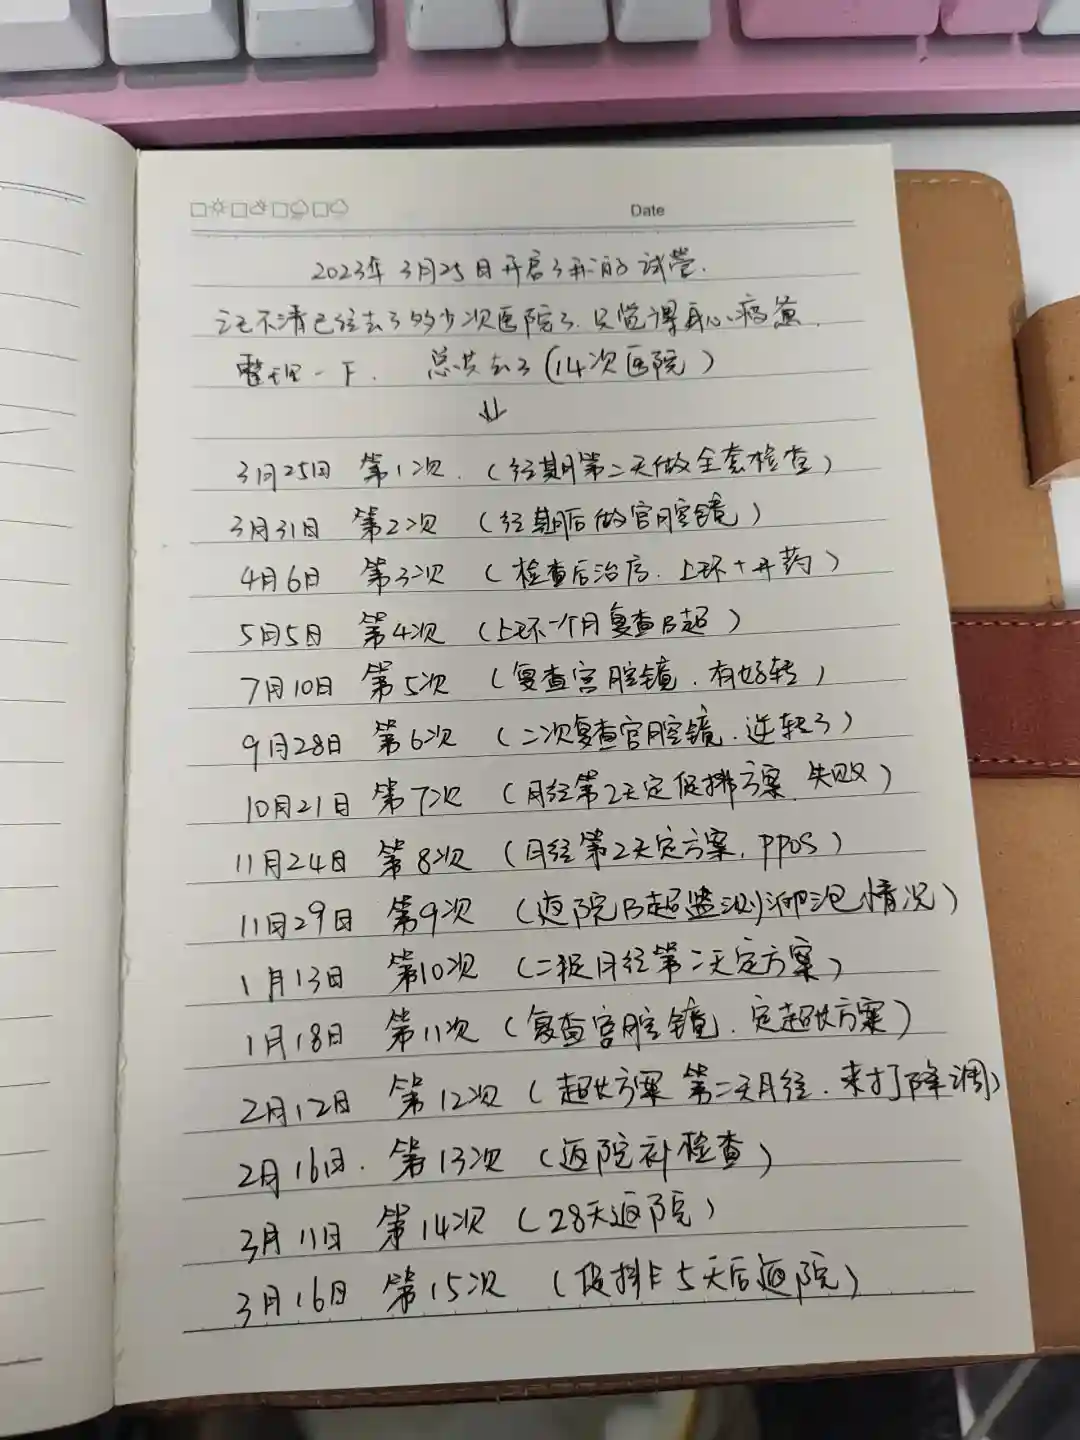 Date
2023年3月25日开启了我的试管.
记不清已经去了多少次医院了.只觉得身心疲惫.
整理一下. 总共去了(14次医院)
3月25日 第1次.(经期第二天做全套检查)
3月31日 第2次 (经期后做宫腔镜)
4月6日 第3次 (检查后治疗.上环+开药)
5月5日 第4次 (上环一个月复查B超)
7月10日 第5次 (复查宫腔镜.有好转)
9月28日 第6次 (二次复查宫腔镜.逆转了)
10月21日 第7次 (月经第2天定促排方案.失败)
11月24日 第8次 (月经第2天定方案.PPOS)
11月29日 第9次 (返院B超监测卵泡情况)
1月13日 第10次 (二促月经第二天定方案)
1月18日 第11次 (复查宫腔镜.定超长方案)
2月12日 第12次 (超长方案 第二天月经.来打降调)
2月16日. 第13次 (返院补检查)
3月11日 第14次 (28天返院)
3月16日 第15次 (促排 5天后返院)